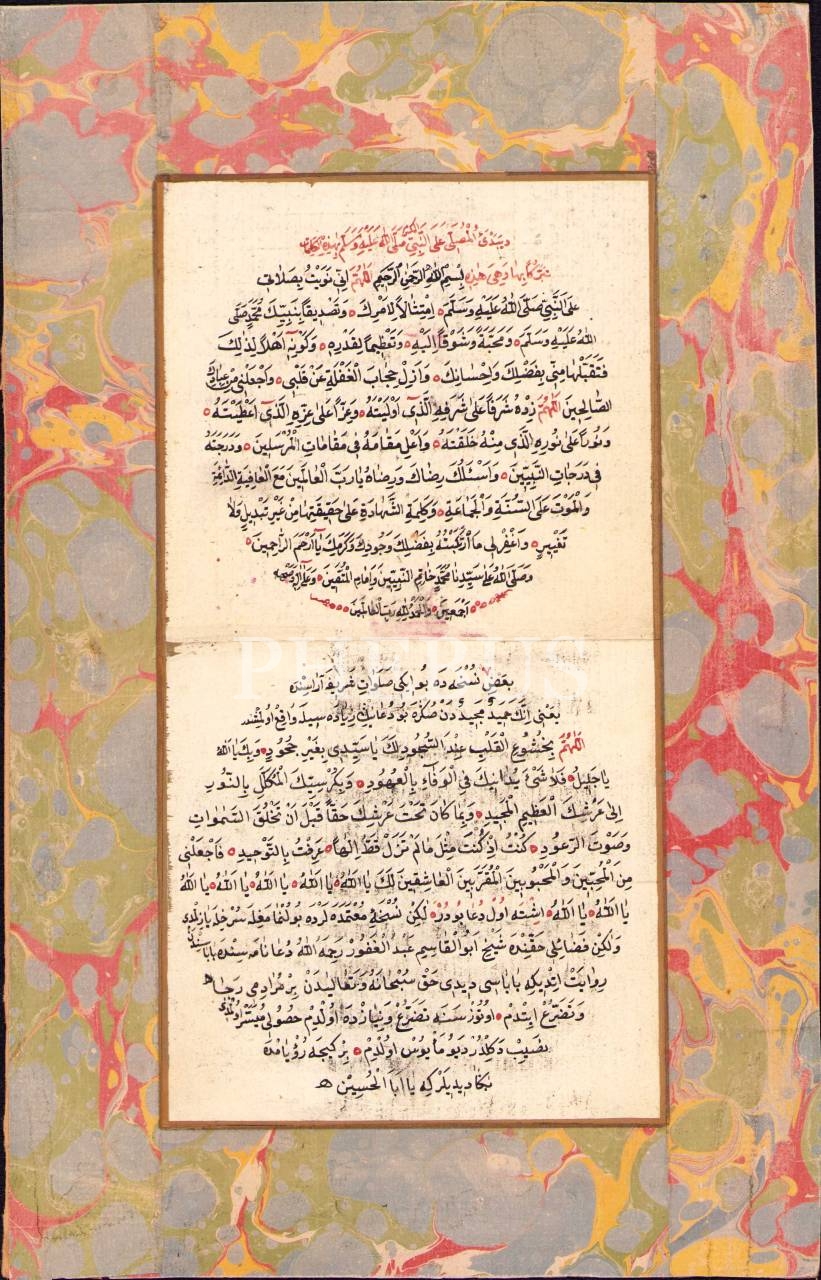 ويبتدئ المصلي على النبي صلى الله عليه وسلم بهذه الكلمات
تبركا بها وهي هذه بِسْمِ اللهِ الرَّحْمٰنِ الرَّحِيمِ اللّٰهُمَّ اِنِّي نَوَيْتُ بِصَلَاتِي
عَلَى النَّبِيِّ صَلَّى اللهُ عَلَيْهِ وَسَلَّمَ اِمْتِثَالاً لِاَمْرِكَ وَتَصْدِيقاً بِنَبِيِّكَ مُحَمَّدٍ صَلَّى
اللهُ عَلَيْهِ وَسَلَّمَ وَمَحَبَّةً وَشَوْقاً اِلَيْهِ وَتَعْظِيماً لِقَدْرِهِ وَكَوْنِهِ اَهْلاً لِذٰلِكَ
فَتَقَبَّلْهَا مِنِّي بِفَضْلِكَ وَاِحْسَانِكَ وَاَزِلْ حِجَابَ الْغَفْلَةِ عَنْ قَلْبِي وَاجْعَلْنِي مِنْ عِبَادِكَ
الصَّالِحِينَ اللّٰهُمَّ زِدْهُ شَرَفاً عَلَى شَرَفِهِ الَّذِي اَوْلَيْتَهُ وَعِزًّا عَلَى عِزِّهِ الَّذِي اَعْطَيْتَهُ
وَنُوراً عَلَى نُورِهِ الَّذِي مِنْهُ خَلَقْتَهُ وَاَعْلِ مَقَامَهُ فِي مَقَامَاتِ الْمُرْسَلِينَ وَدَرَجَتَهُ
فِي دَرَجَاتِ النَّبِيِّينَ وَاَسْئَلُكَ رِضَاكَ وَرِضَاهُ يَا رَبَّ الْعَالَمِينَ مَعَ الْعَافِيَةِ الدَّائِمَةِ
وَالْمَوْتَ عَلَى السُّنَّةِ وَالْجَمَاعَةِ وَكَلِمَةِ الشَّهَادَةِ عَلَى حَقِيقَتِهَا مِنْ غَيْرِ تَبْدِيلٍ وَلَا
تَغْيِيرٍ وَاغْفِرْ لِي مَا ارْتَكَبْتُهُ بِفَضْلِكَ وَجُودِكَ وَكَرَمِكَ يَا اَرْحَمَ الرَّاحِمِينَ
وَصَلَّى اللهُ عَلَى سَيِّدِنَا مُحَمَّدٍ خَاتِمِ النَّبِيِّينَ وَاِمَامِ الْمُتَّقِينَ وَعَلَى اٰلِهِ وَصَحْبِهِ
اَجْمَعِينَ وَالْحَمْدُ لِلّٰهِ رَبِّ الْعَالَمِينَ
PHEBUS
بَعْضِ نُسْخَه دَه بُو ايكى صَلَوَاتِ شَرِيفَه آرَاسِنْدَه
يَعْنِى اِنَّكَ حَمِيدٌ مَجِيدٌ دَنْ صُكْرَه بُو دُعَانِكْ زِيَادَه سِيدَه وَاقِعْ اُولْمِشْدر
اللّٰهُمَّ بِخُشُوعِ الْقَلْبِ عِنْدَ السُّجُودِ لَكَ يَا سَيِّدِي بِغَيْرِ جُحُودٍ وَبِكَ يَا اللهُ
يَا جَلِيلُ فَلَا شَيْءَ يُدَانِيكَ فِي الْوَفَاءِ بِالْعُهُودِ وَبِكُرْسِيِّكَ الْمُكَلَّلِ بِالنُّورِ
اِلَى عَرْشِكَ الْعَظِيمِ الْمَجِيدِ وَبِمَا كَانَ تَحْتَ عَرْشِكَ حَقًّا قَبْلَ اَنْ تَخْلُقَ السَّمٰوَاتِ
وَصَوْتَ الرُّعُودِ كُنْتَ اِذْ كُنْتَ مِثْلَ مَا لَمْ تَزَلْ قَطُّ اِلٰهاً عُرِفْتَ بِالتَّوْحِيدِ فَاجْعَلْنِي
مِنَ الْمُحِبِّينَ وَالْمَحْبُوبِينَ الْمُقَرَّبِينَ الْعَاشِقِينَ لَكَ يَا اَللهُ يَا اَللهُ يَا اَللهُ يَا اَللهُ يَا اَللهُ
يَا اَللهُ يَا اَللهُ اِشْتَه اُولْ دُعَا بُودُرْ لٰكِنْ نُسْخَهٔ مُعْتَمَدَه لَرْدَه بُولُنْمَامَغِلَه سُرْخِلَه يَازِلْدِى
وَلٰكِنْ فَضَائِلِى حَقِّنْدَه شَيْخ اَبُو الْقَاسِمِ عَبْدُ الْغَفُورْ رَحِمَهُ اللهُ دُعَانَامَه سِنْدَه بَابَاسِنْدَنْ
رِوَايَتْ اِتْدِى كِه بَابَاسِى دِيدِى حَقْ سُبْحَانَهُ وَتَعَالَيدَنْ بِرْ مُرَادِمِى رَجَا
وَتَضَرُّعْ اِيتْدِمْ اُوتُوزْ سَنَه تَضَرُّعْ وَنِيَازْدَه اُولْدِمْ حُصُولِى مُيَسَّرْ اُولْمَدِى
نَصِيبْ دَكِلْدُرْ دِيُو مَأْيُوسْ اُولْدِمْ بِرْ كِيجَه رُؤْيَامْدَه
بَكَا دِيدِيلَرْ كِه يَا اَبَا الْحُسَيْن